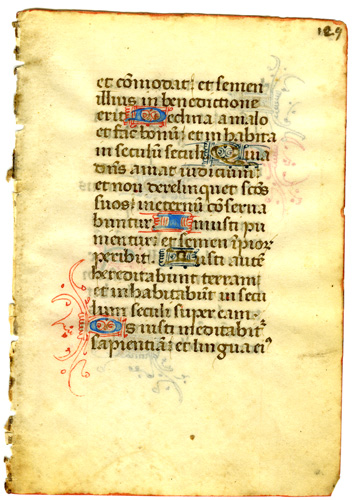 129
et cōmodat: et semen
illius in benedictione
erit. Declina a malo
et fac bonū: et inhabita
in seculū seculi. Quia
dn̄s amat iudicium:
et non derelinquet scōs
suos: ineternū conserva
buntur. Iniusti pu
nientur: et semen īpior
peribit. Iusti autē
hereditabunt terram:
et inhabitabūt in secu
lum seculi super eam.
Os iusti meditabit᷑
sapientiā: et lingua ei᷒